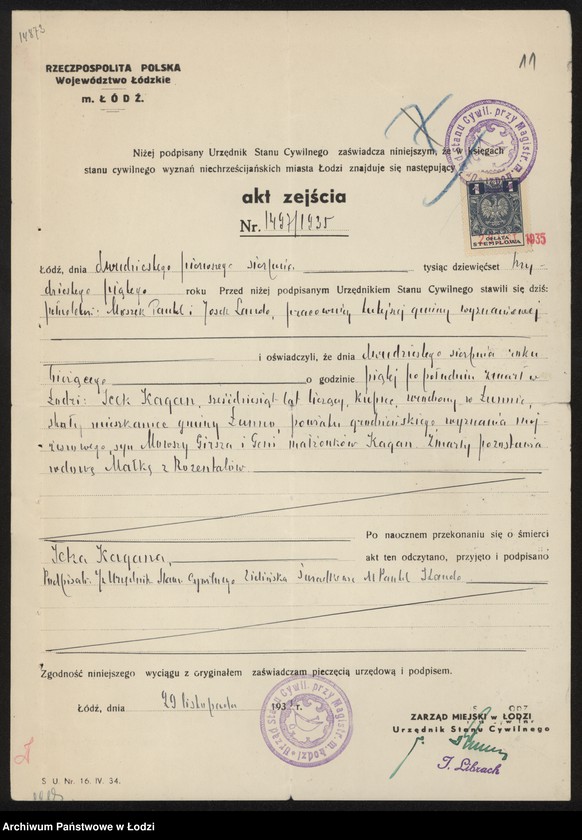 14873
11
RZECZPOSPOLITA POLSKA
Województwo Łódzkie
m. ŁÓDŹ.
Niżej podpisany Urzędnik Stanu Cywilnego zaświadcza niniejszym, że w księgach
stanu cywilnego wyznań niechrześcijańskich miasta Łodzi znajduje się następujący
akt zejścia
Nr. 1497/1935
OPŁATA
STEMPLOWA
1935
Łódź, dnia dwudziestego pierwszego sierpnia tysiąc dziewięćset trzy-
dziestego piątego roku Przed niżej podpisanym Urzędnikiem Stanu Cywilnego stawili się dziś:
pełnoletni: Moszek Pankl i Josek Lando, pracownicy tutejszej gminy wyznaniowej
i oświadczyli, że dnia dwudziestego sierpnia roku
bieżącego o godzinie piątej po południu zmarł w
Łodzi: Icek Kagan, sześćdziesiąt lat liczący, kupiec, urodzony w Łunnie,
stały mieszkaniec gminy Łunno, powiatu grodzieńskiego wyznania moj-
żeszowego, syn Mowszy Girsza i Geni małżonków Kagan. Zmarły pozostawia
wdowę Małkę z Rozentalów.
Po naocznem przekonaniu się o śmierci
Icka Kagana, akt ten odczytano, przyjęto i podpisano
Podpisali: Urzędnik Stanu Cywilnego M Pankl I Lando
Zgodność niniejszego wyciągu z oryginałem zaświadczam pieczęcią urzędową i podpisem.
Łódź, dnia 29 listopada 193 r.
Urząd Stanu Cywil. przy Magistr. m. Łodzi
ZARZĄD MIEJSKI w ŁODZI
Urzędnik Stanu Cywilnego
I. Librach
S U. Nr. 16. IV. 34.
Archiwum Państwowe w Łodzi